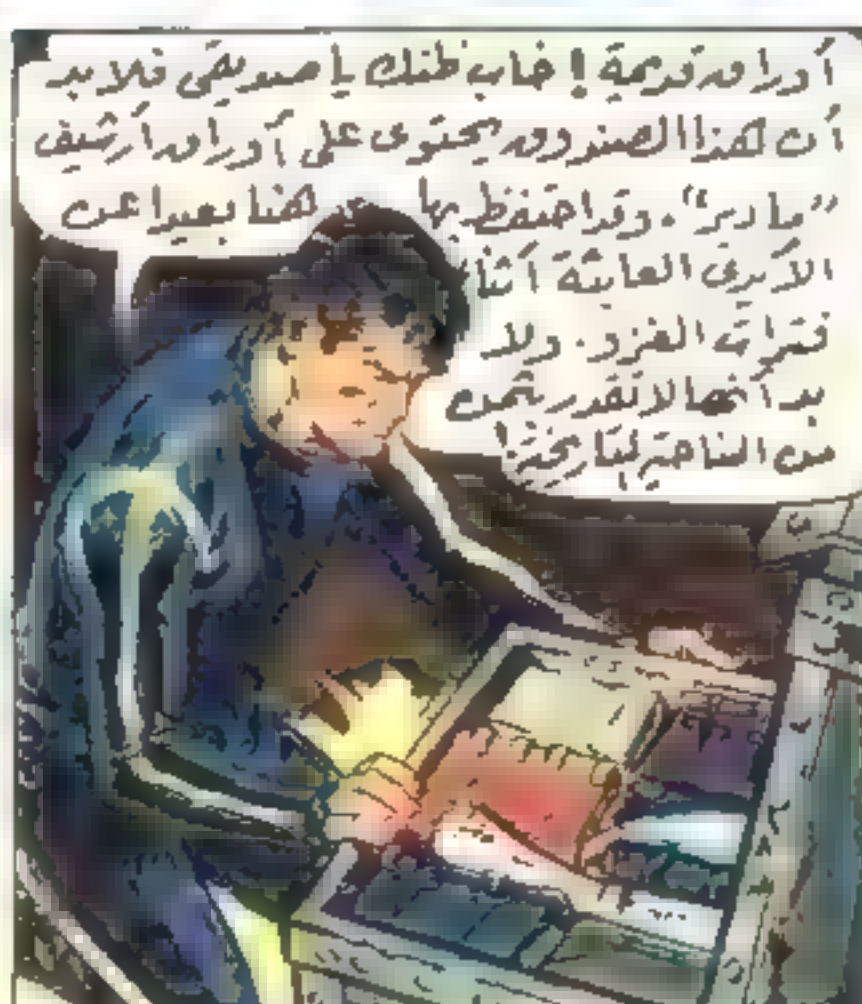 أوراق قديمة! خاب ظنك يا صديقى فلابد
أن هذا الصندوق يحتوى على أوراق أرشيف
"مادير". وقد احتفظ بها هنا بعيدا عن
الأيدى العابثة أثنا
فترات الغزو. ولا
بد أنها لا تقدر بثمن
من الناحية التاريخية!